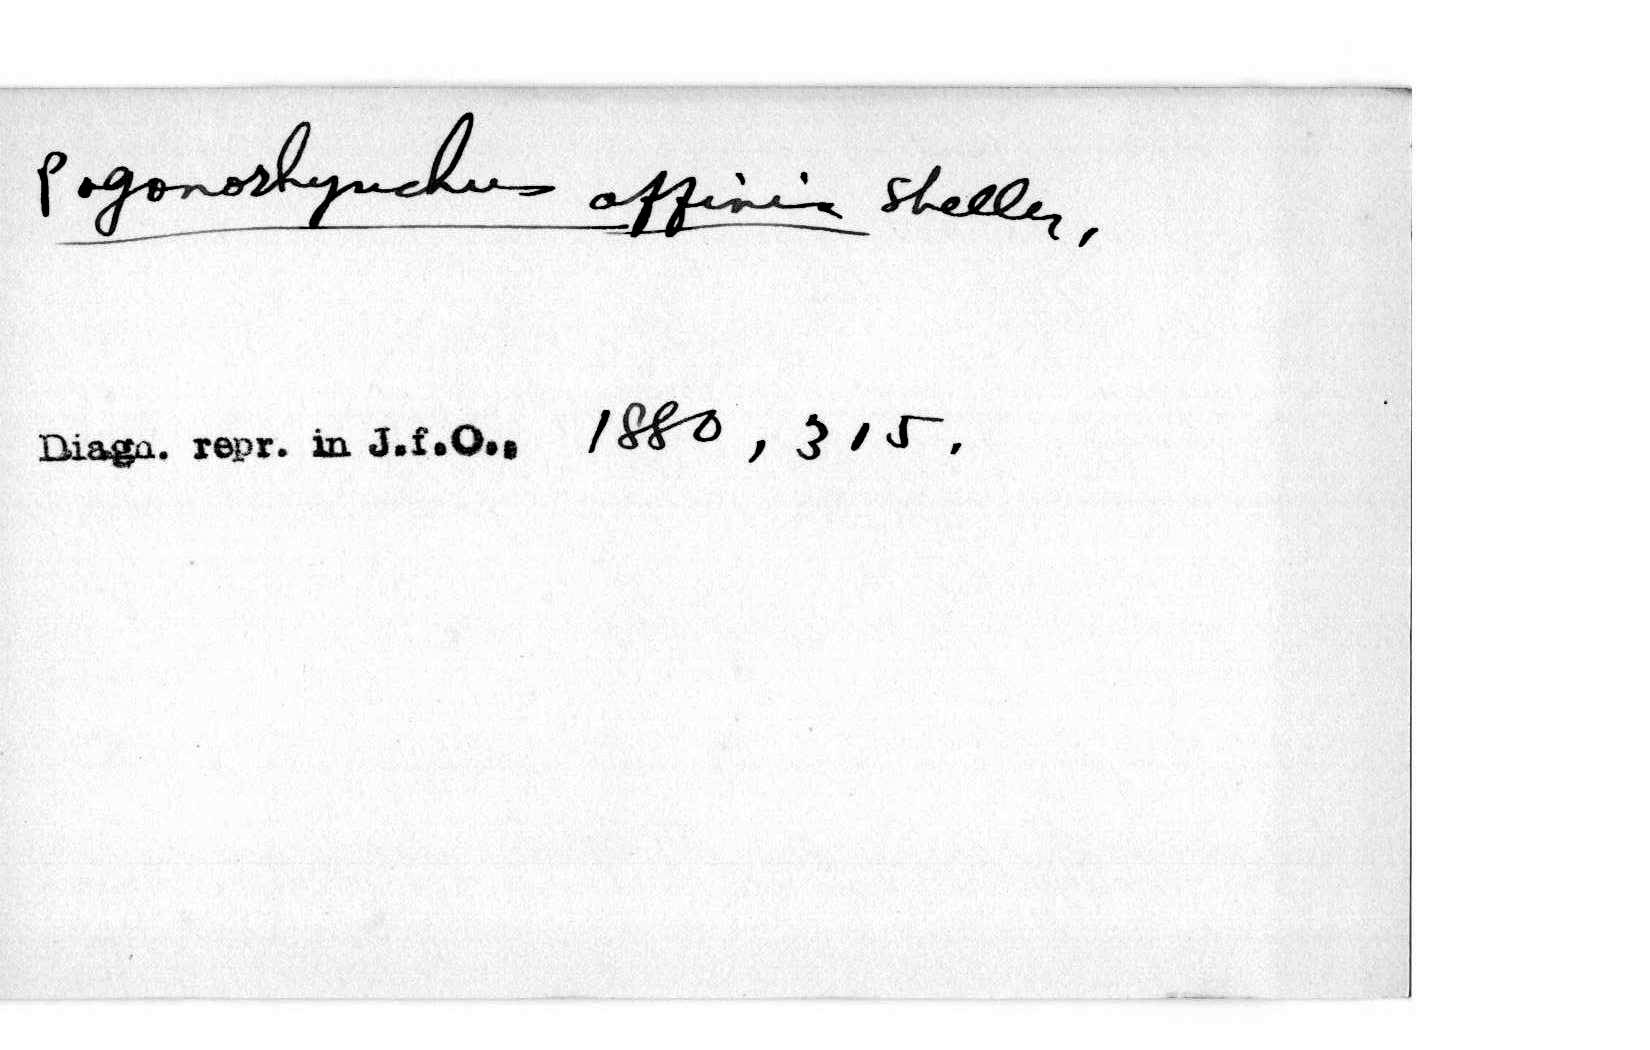 Pogonorhynchus affinis Shelley,
Diagn. repr. in J.f.O., 1880, 315.